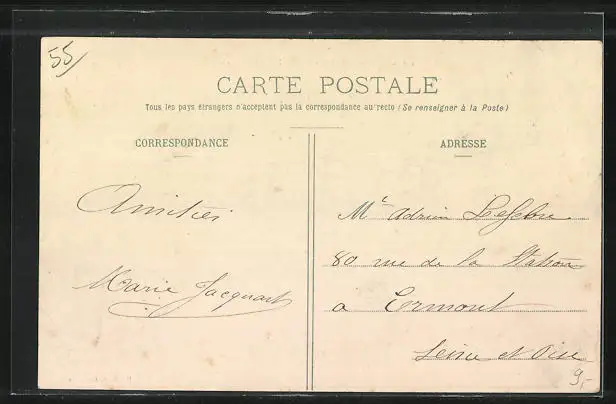 55
CARTE POSTALE
Tous les pays étrangers n'acceptent pas la correspondance au recto (Se renseigner à la Poste)
CORRESPONDANCE
Amitiés
Marie Jacquart
ADRESSE
Mr Adrien Lefebvre
80 rue de la Station
a Ermont
Seine et Oise
9.-